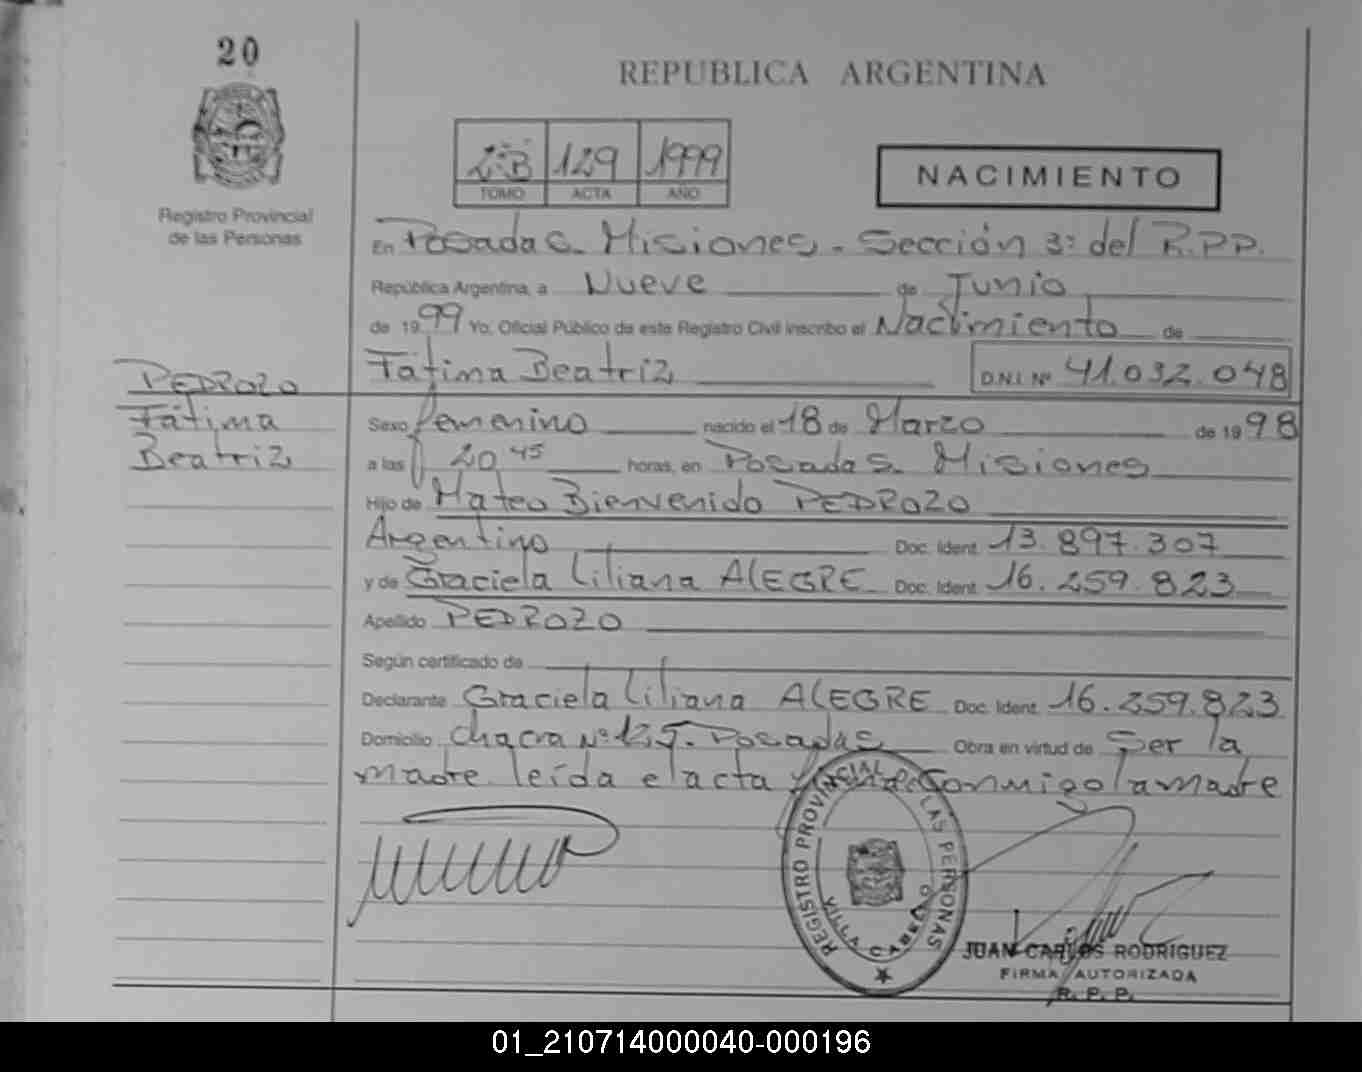 20
REPUBLICA ARGENTINA
2ºB 129 1999
TOMO ACTA AÑO
NACIMIENTO
Registro Provincial
de las Personas
En Posadas. Misiones. Sección 3ª del R.P.P.
República Argentina, a Nueve de Junio
de 1999 Yo, Oficial Público de este Registro Civil inscribo el Nacimiento de
Fátima Beatriz D.N.I. Nº 41.032.048
PEDROZO
Fátima
Beatriz
Sexo femenino nacido el 18 de Marzo de 1998
a las 20 45 horas, en Posadas. Misiones
Hijo de Mateo Bienvenido PEDROZO
Argentino Doc. Ident. 13.897.307
y de Graciela Liliana ALEGRE Doc. Ident. 16.259.823
Apellido PEDROZO
Según certificado de
Declarante Graciela Liliana ALEGRE Doc. Ident. 16.259.823
Domicilio Chacra Nº 125. Posadas Obra en virtud de Ser la
madre leída el acta conmigo la madre
REGISTRO PROVINCIAL DE LAS PERSONAS
VILLA CABELLO
JUAN CARLOS RODRIGUEZ
FIRMA AUTORIZADA
R. P. P.
01_210714000040-000196